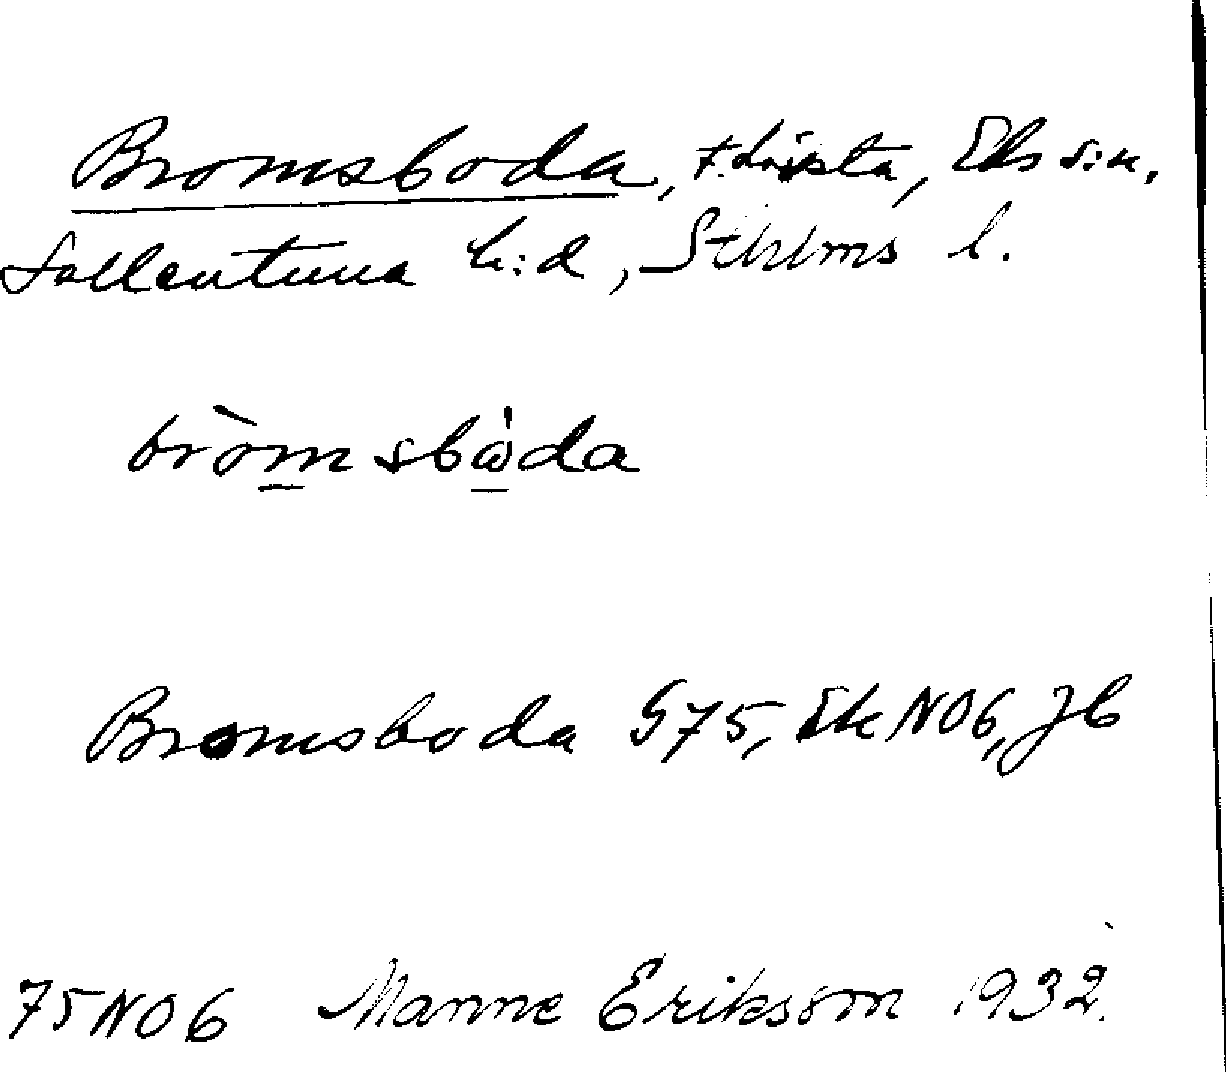 Bromsboda, t. Löpsta, Eds s:n,
Sollentuna h:d, Sthlms l.
bròmsbὼda
Bromsboda G75, Ek NO6, Jb
75 NO 6 Manne Eriksson 1932.